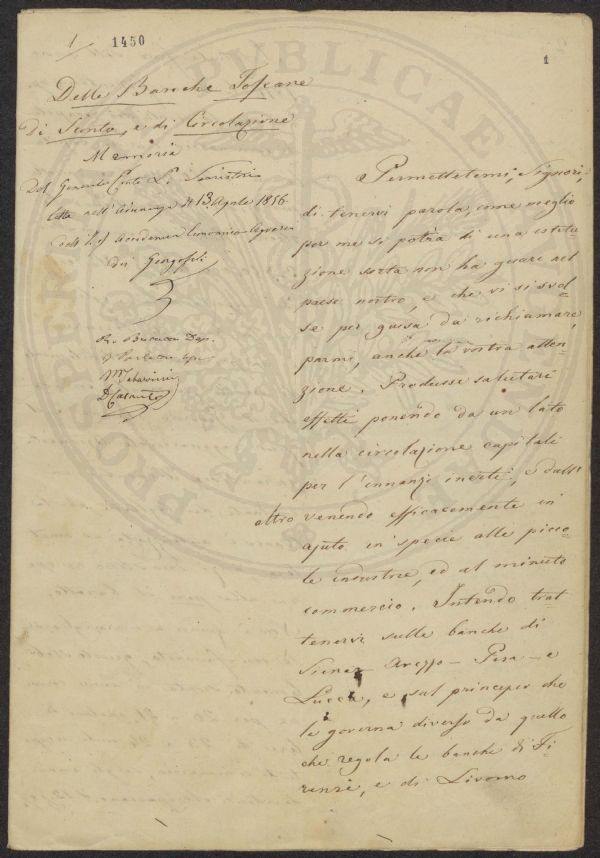 1
1450
1
Delle Banche Toscane
di Sconto, e di Circolazione
Memoria
Del Generale Conte L. Serristori
letta nell'Adunanza del 13. Aprile 1856
nell' I. e R. Accademia Economico-Agraria
dei Georgofili
Permettetemi, Signori,
di tenervi parola, come meglio
per me si potrà di una istitu-
zione sorta non ha guari nel
paese nostro, e che vi si svol-
se per guisa da richiamare,
parmi, anche la vostra atten-
zione. Produsse salutari
effetti ponendo da un lato
nella circolazione capitali
per l'innanzi inerti, e dall'
altro venendo efficacemente in
ajuto in specie alle picco-
le industrie, ed al minuto
commercio. Intendo trat-
tenervi sulle banche di
Siena - Arezzo - Pisa - e
Lucca, e sul principio che
le governa diverso da quello
che regola le banche di Fi-
renze, e di Livorno
PUBLICAE
PROSPERITATI